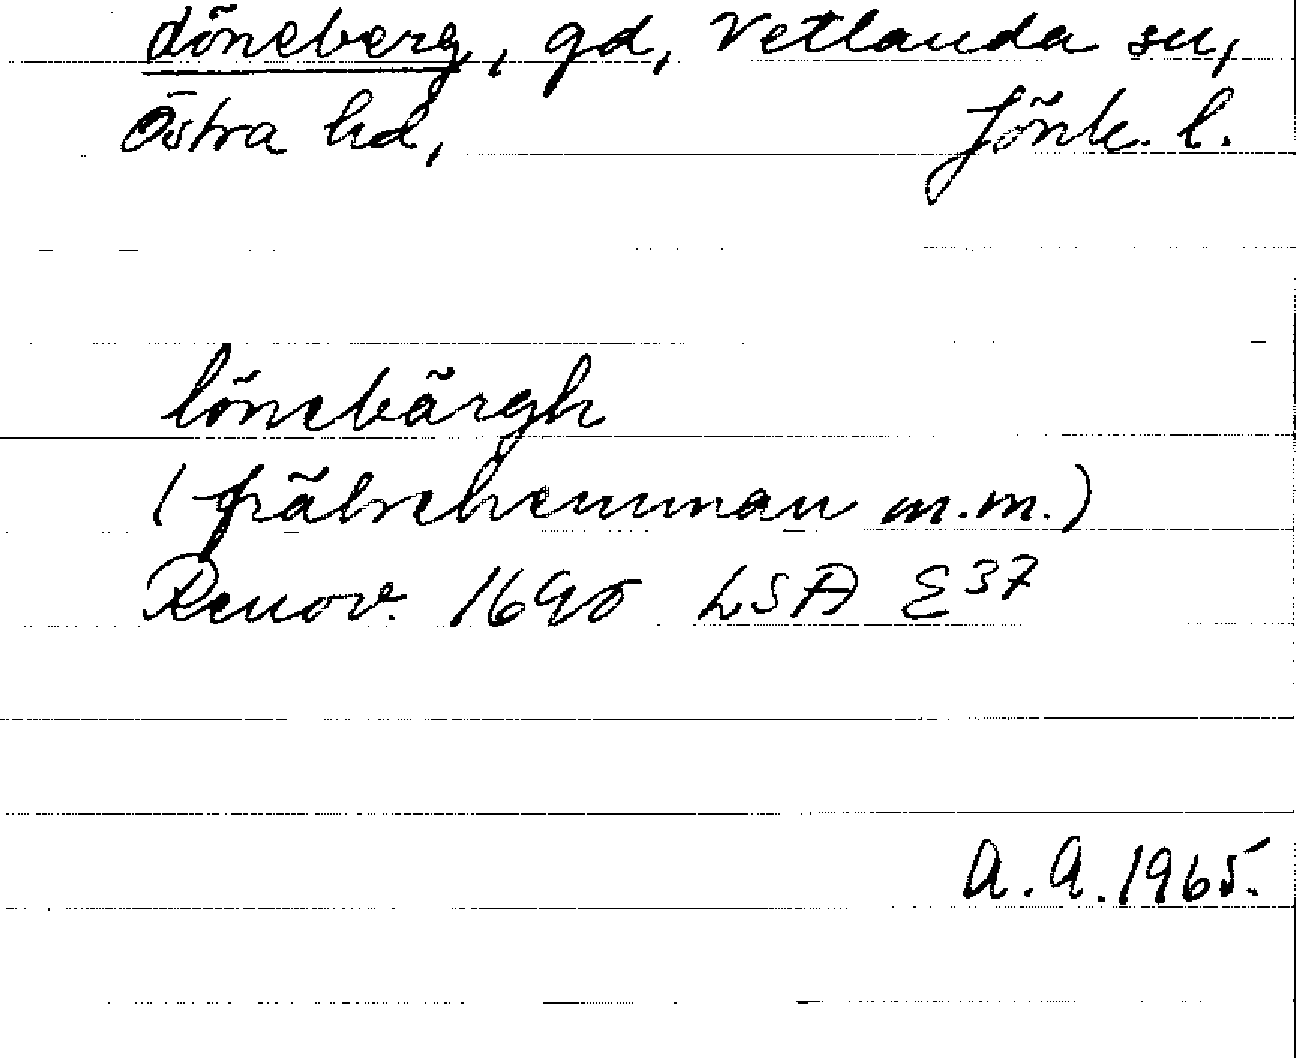 Löneberg, gd, Vetlanda sn,
Östra hd, Jönk. l.
lönebärgh
(frälsehemman m.m.)
Renov. 1695 LSA E37
A.A. 1965.